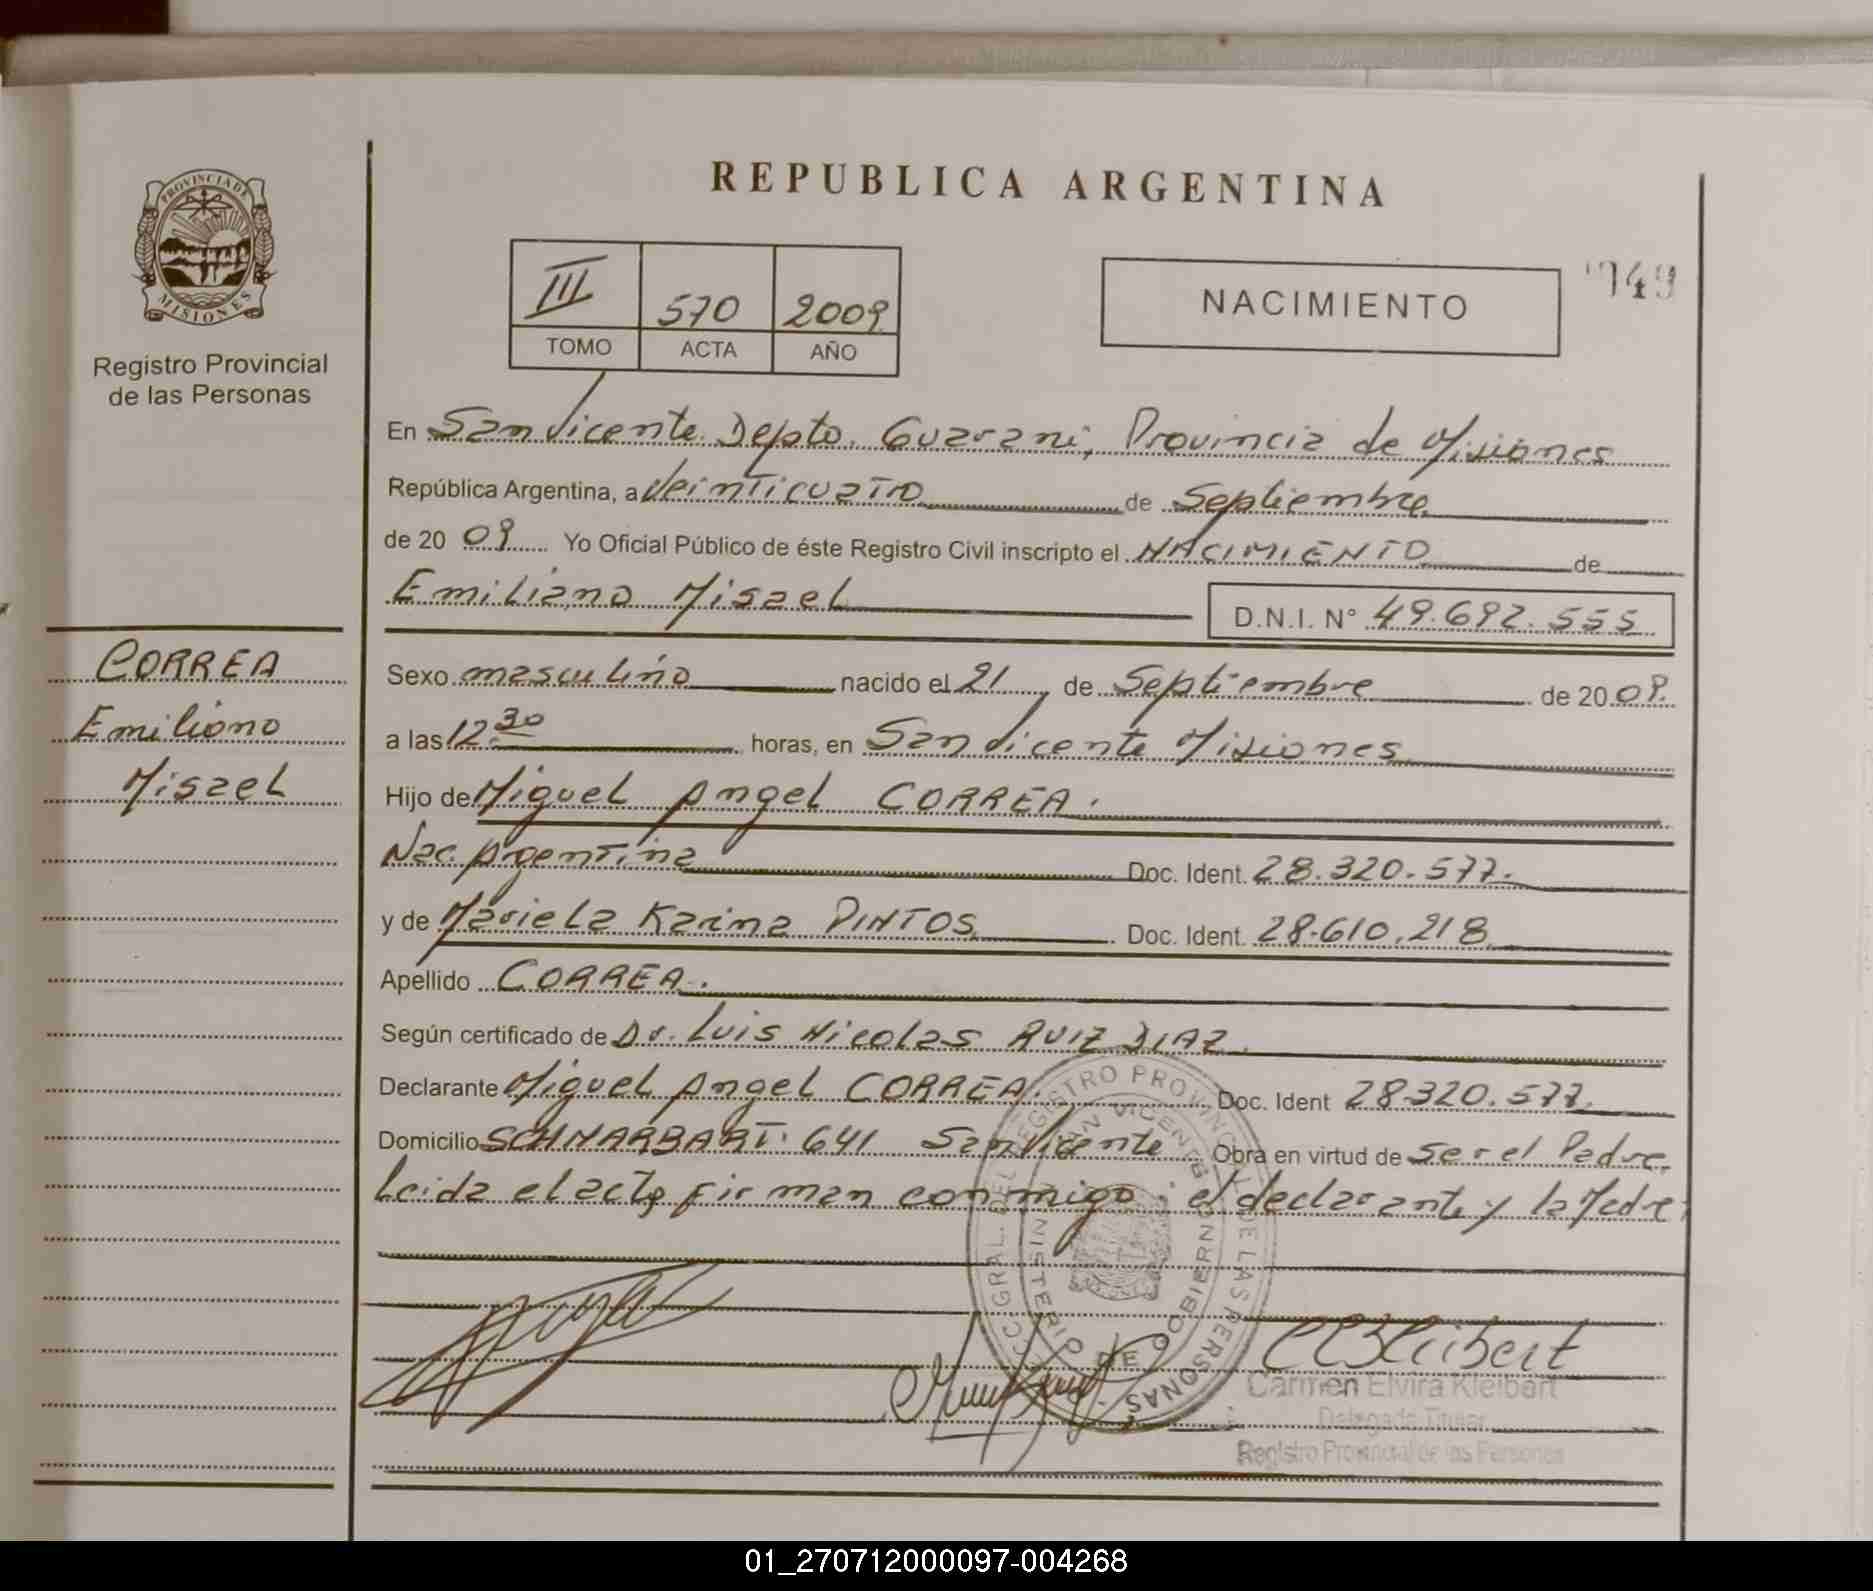 REPUBLICA ARGENTINA
PROVINCIA DE
MISIONES
Registro Provincial
de las Personas
III 570 2009
TOMO ACTA AÑO
NACIMIENTO
749
En San Vicente Depto. Guarani, Provincia de Misiones
República Argentina, a Veinticuatro de Septiembre
de 20 09 Yo Oficial Público de éste Registro Civil inscripto el NACIMIENTO de
Emiliano Misael
D.N.I. N° 49.692.555
CORREA
Emiliano
Misael
Sexo masculino nacido el 21 de Septiembre de 20 09.
a las 12:30 horas, en San Vicente Misiones
Hijo de Miguel Angel CORREA.
Nac. Argentina Doc. Ident. 28.320.577.
y de Mariela Karina PINTOS Doc. Ident. 28.610.218
Apellido CORREA.
Según certificado de Dr. Luis Nicolas RUIZ DIAZ
Declarante Miguel Angel CORREA. Doc. Ident 28.320.577.
Domicilio SCHNARBART. 641 San Vicente Obra en virtud de ser el Padre.
Leida el acta firman conmigo: el declarante y la Madre.
REGISTRO PROVINCIAL DE LAS PERSONAS
SAN VICENTE
Carmen Elvira Kleibart
Delegada Titular
Registro Provincial de las Personas
01_270712000097-004268